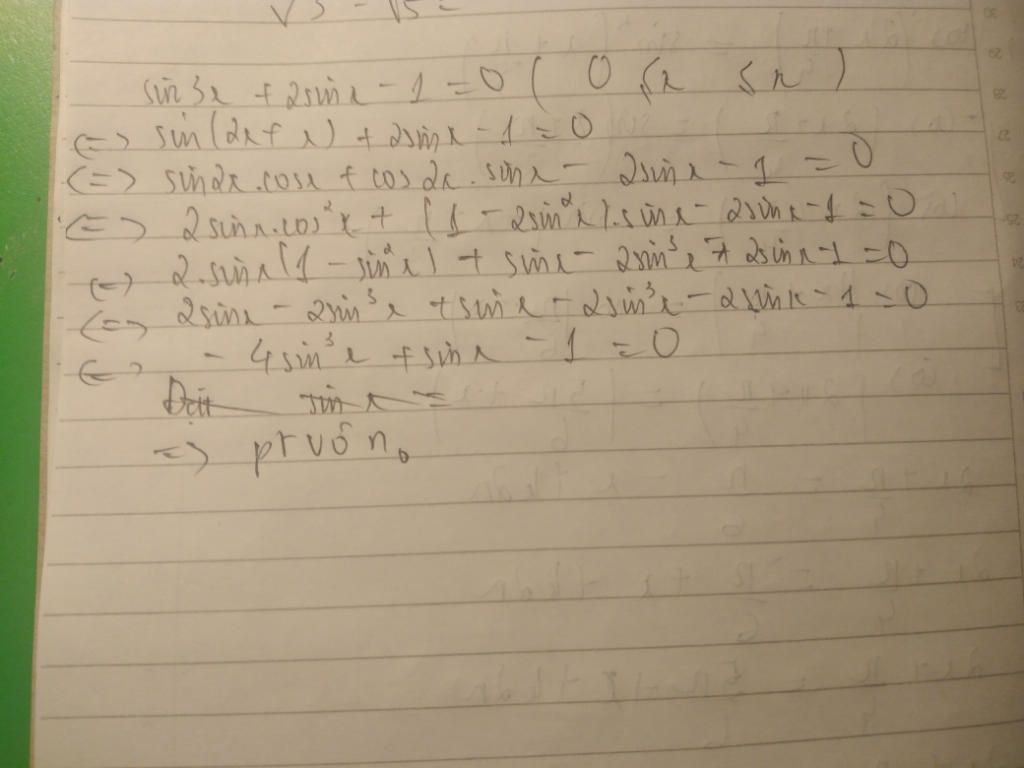 √3 - √5 =
sin3x + 2sinx - 1 = 0 ( 0 ≤ x ≤ π )
<=> sin(2x + x) + 2sinx - 1 = 0
<=> sin2x.cosx + cos2x.sinx - 2sinx - 1 = 0
<=> 2sinx.cos²x + (1 - 2sin²x).sinx - 2sinx - 1 = 0
<=> 2.sinx(1 - sin²x) + sinx - 2sin³x + 2sinx - 1 = 0
<=> 2sinx - 2sin³x + sinx - 2sin³x - 2sinx - 1 = 0
<=> - 4sin³x + sinx - 1 = 0
Đặt sinx =
=> pt vô no